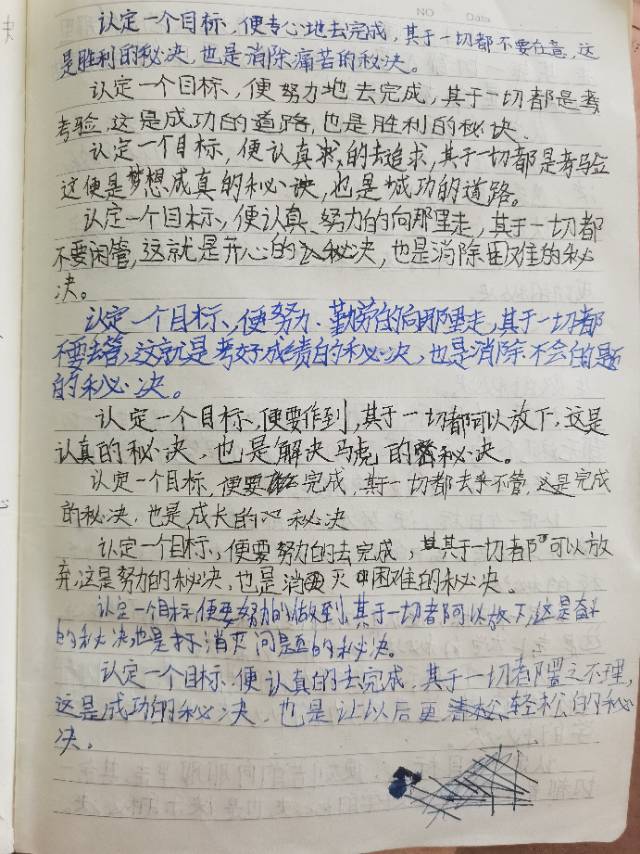 认定一个目标，便专心地去完成，其于一切都不要在意，这
是胜利的秘决，也是消除痛苦的秘决。
认定一个目标，便努力地去完成，其于一切都是考
考验，这是成功的道路，也是胜利的秘诀．
认定一个目标，便认真求的去追求，其于一切都是考验
这便是梦想成真的秘诀，也是成功的道路。
认定一个目标、便认真、努力的向那里走，其于一切都
不要闲管，这就是开心的秘决，也是消除困难的秘
决。
认定一个目标、，便努力、勤劳的向那里走，其于一切都
不要去管，这就是考好成绩的秘决，也是消除不会的题
的秘决。
认定一个目标、便要作到，其于一切都可以放下，这是
认真的秘决，也是解决马虎的秘决。
认定一个目标，便要完成，其于一切都去不管，这是完成
的秘决，也是成长的秘决
认定一个目标，便要努力的去完成，其于一切都可以放
弃，这是努力的秘决，也是消灭困难的秘决。
认定一个目标，便要努力的做到，其于一切都可以放下，这是奋斗
的秘决也是消灭问题的秘决。
认定一个目标、便认真的去完成，其于一切都置之不理，
这是成功的秘决，也是让以后更轻松的秘
决。